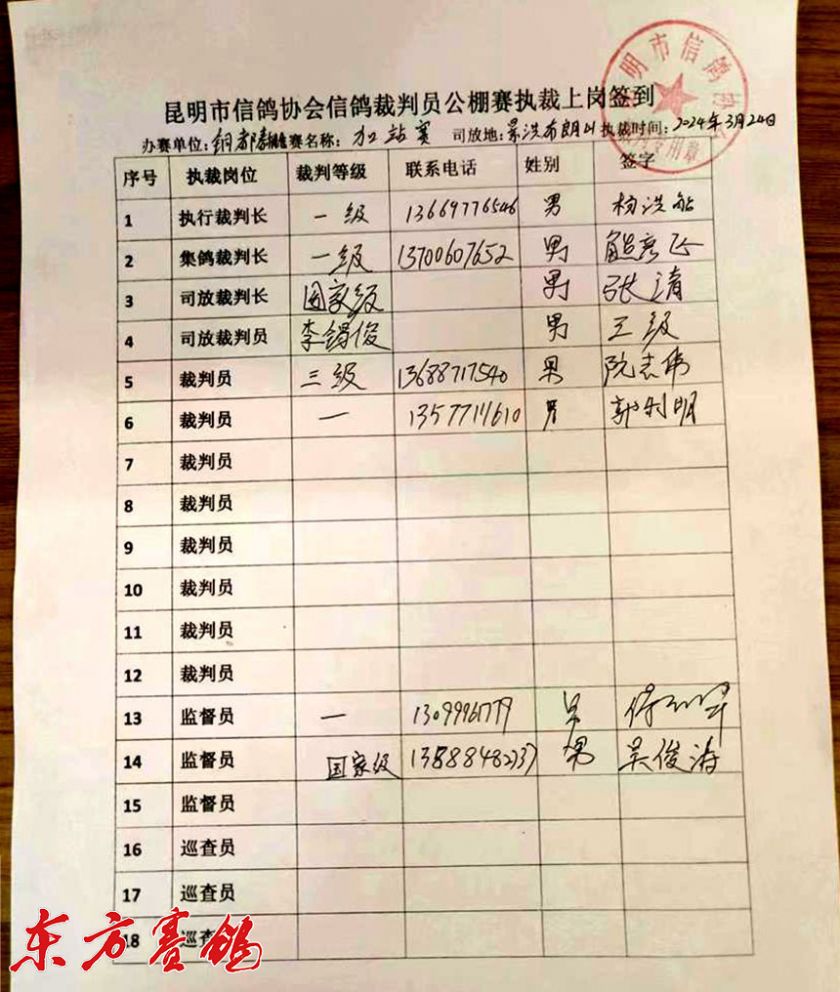 昆明市信鸽协会信鸽裁判员公棚赛执裁上岗签到
办赛单位：铜都 赛名称：加站赛 司放地：景洪布朗山 执裁时间：2024年3月24日
序号 执裁岗位 裁判等级 联系电话 姓别 签字
1 执行裁判长 一级 13669776546 男 杨洪
2 集鸽裁判长 一级 13700607652 男 彦飞
3 司放裁判长 国家级 男 张清
4 司放裁判员 李锡俊 男 三级
5 裁判员 三级 13688717540 男 阮志伟
6 裁判员 一 13577711610 男 郭利明
7 裁判员
8 裁判员
9 裁判员
10 裁判员
11 裁判员
12 裁判员
13 监督员 一 男
14 监督员 国家级 男 吴俊涛
15 监督员
16 巡查员
17 巡查员
18 巡查
明市信鸽协
用章
东方赛鸽